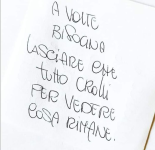 A VOLTE
BISOGNA
LASCIARE CHE
TUTTO CROLLI
PER VEDERE
COSA RIMANE.